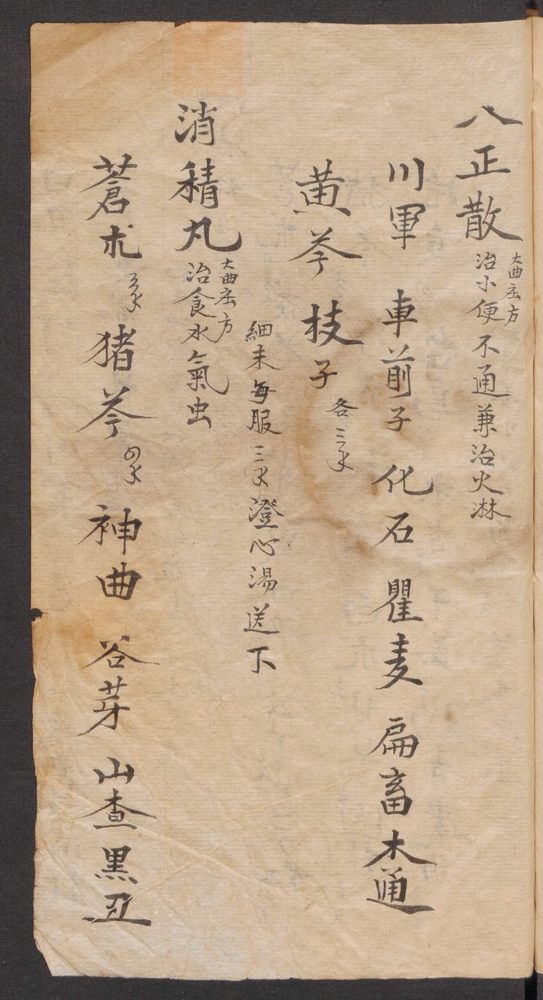 八正散 大曲庄方 治小便不通兼治火淋
川軍 車前子 化石 瞿麦 扁畜 木通
黄芩 枝子 各三
細末每服三 澄心湯送下
消積丸 大曲庄方 治食水氣虫
蒼朮 猪苓 神曲 谷芽 山查 黒丑